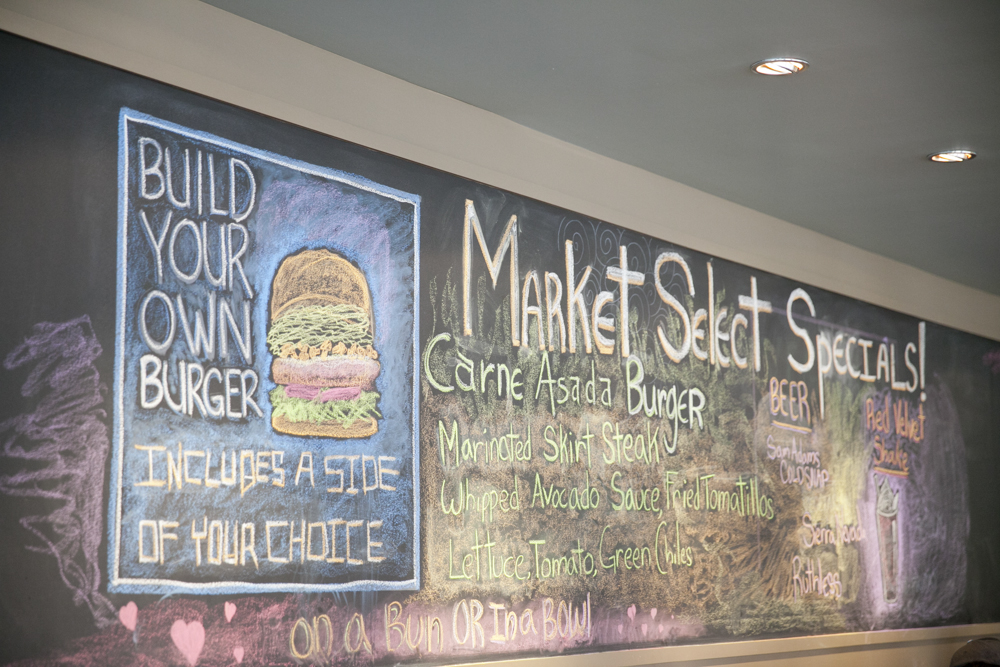 BUILD
YOUR
OWN
BURGER
INCLUDES A SIDE
OF YOUR CHOICE
Market Select Specials!
Carne Asada Burger
Marinated Skirt Steak
Whipped Avocado Sauce, Fried Tomatillos
Lettuce, Tomato, Green Chiles
on a Bun OR In a Bowl
BEER
Sam Adams
COLD SNAP
Sierra Nevada
Ruthless
Red Velvet
Shake